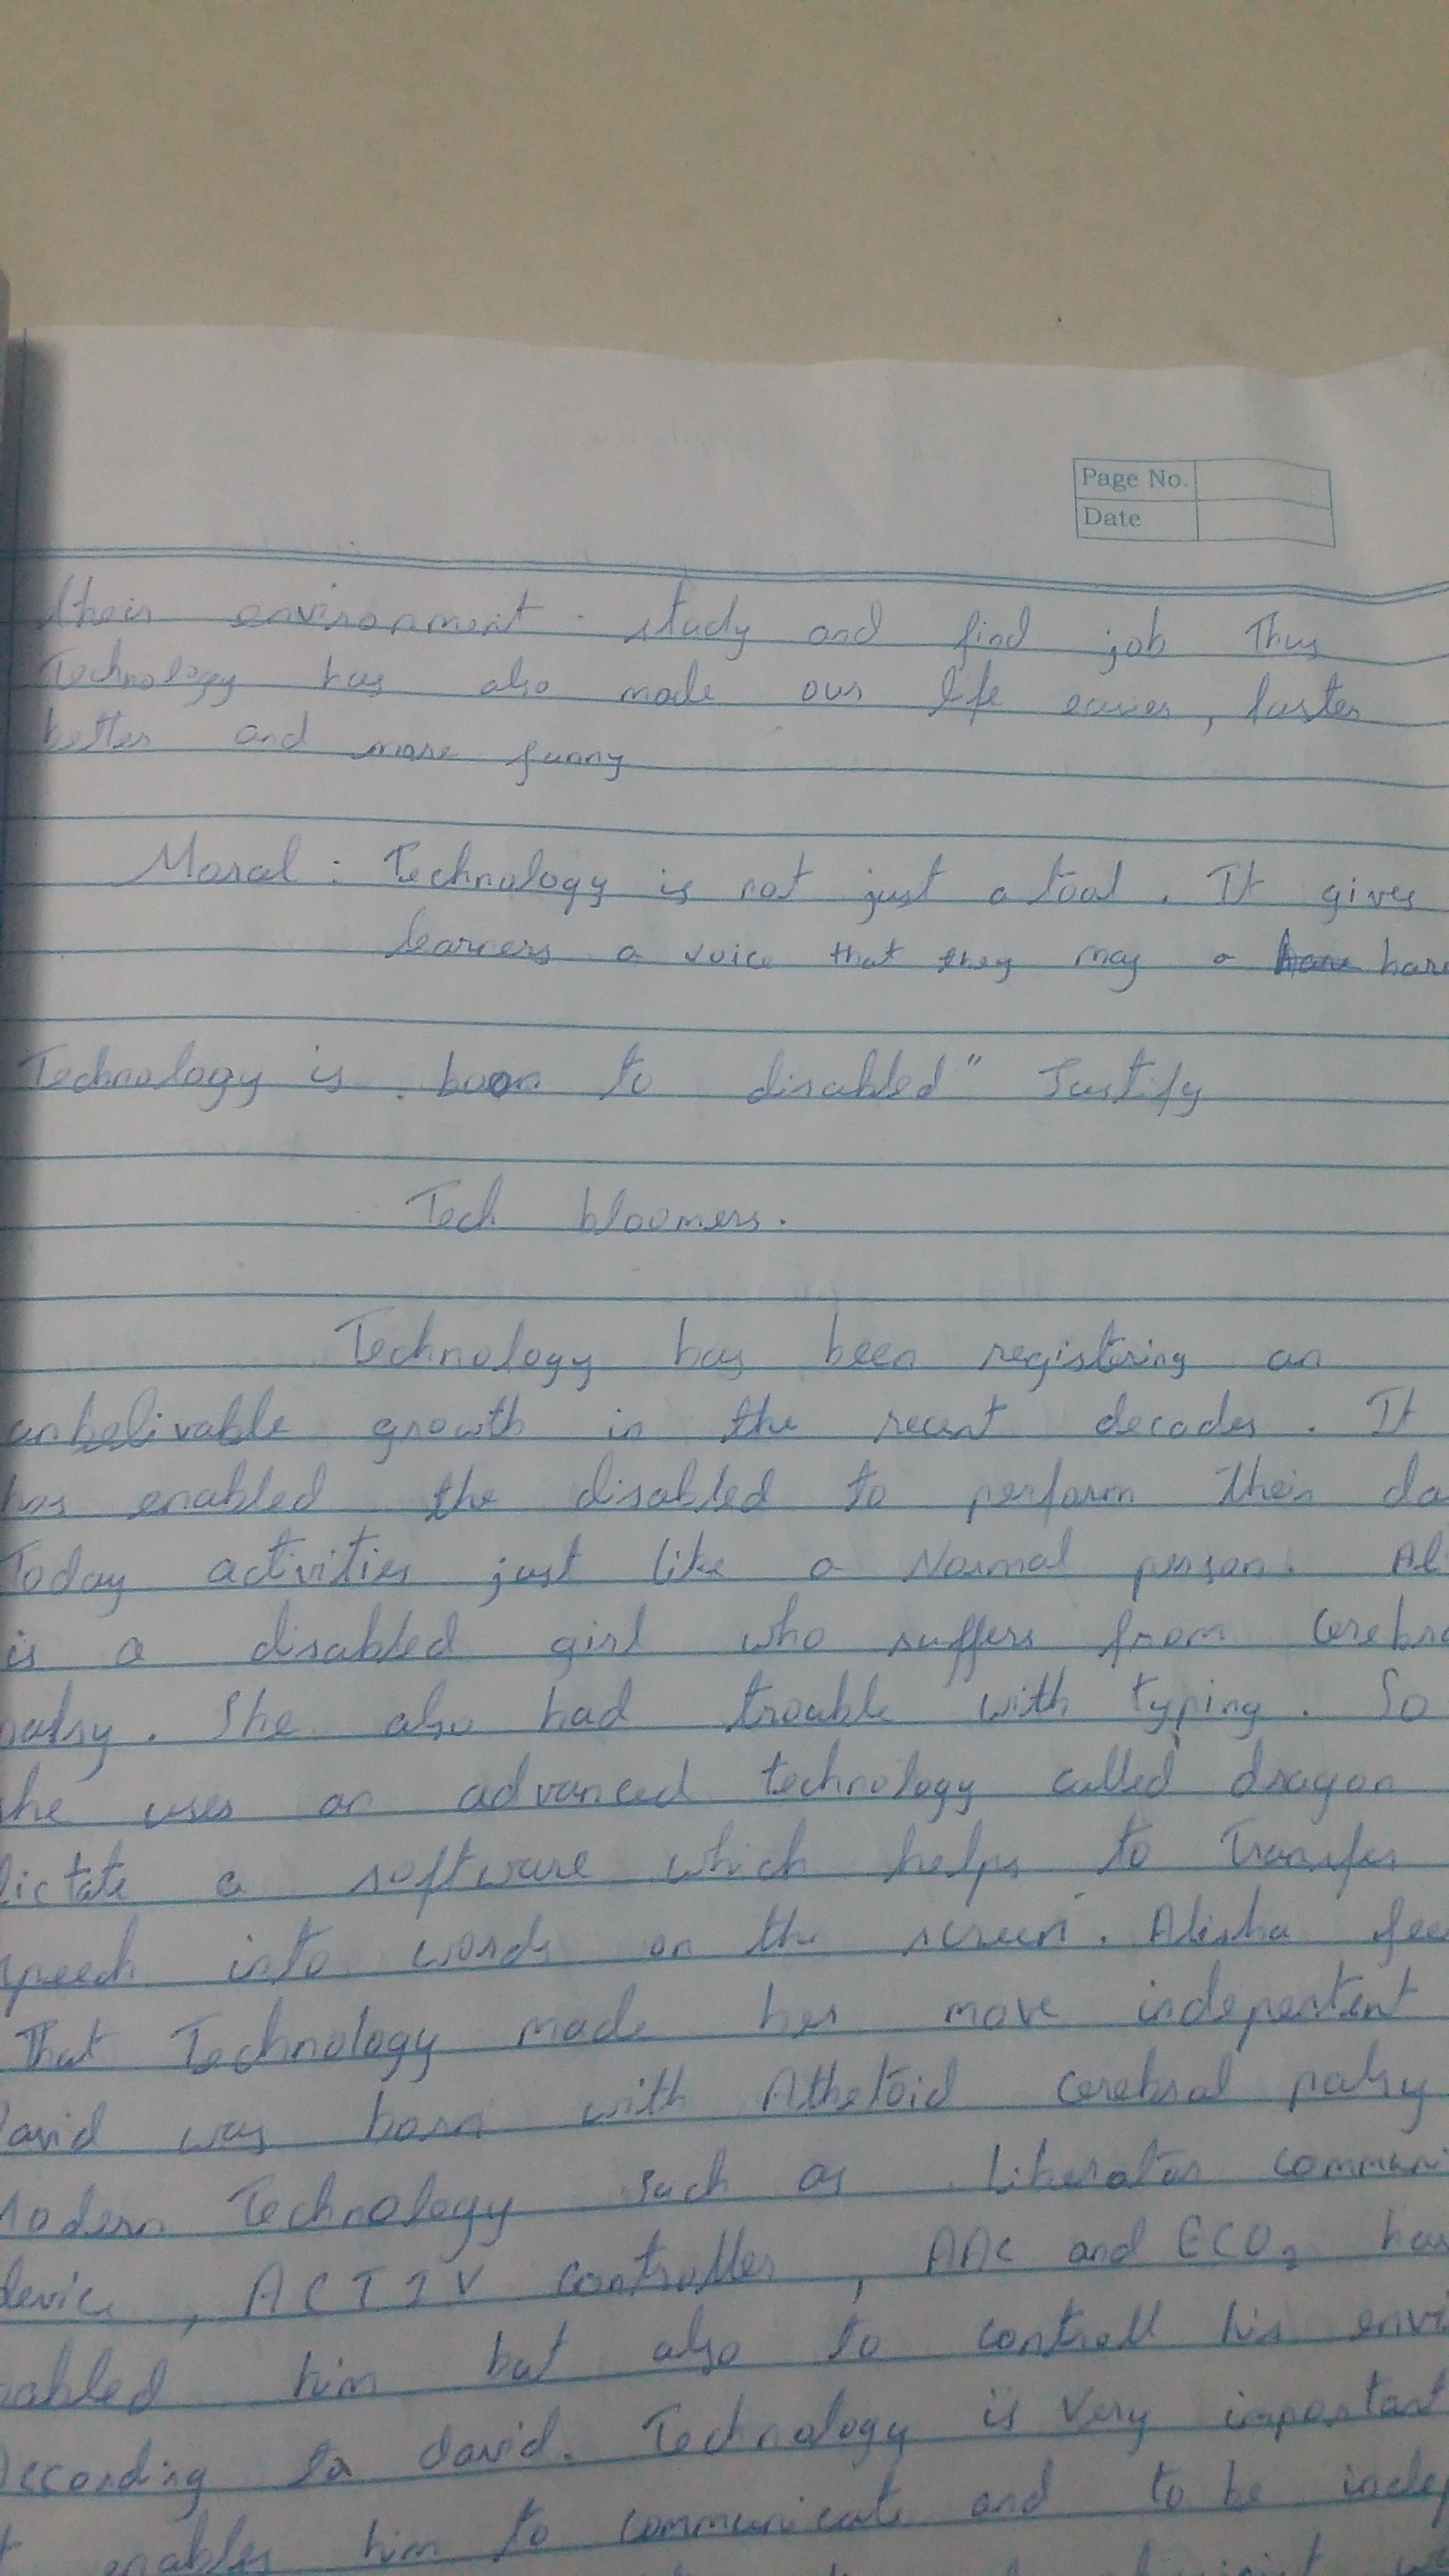 Page No.
Date
their environment. study and find job Thus
Technology has also made our life easier, faster
better and more funny
Moral : Technology is not just a tool. It gives
learners a voice that they may a have
Technology is boon to disabled" Justify
Tech bloomers.
Technology has been registering an
unbelivable growth in the recent decades. It
has enabled the disabled to perform their da
Today activities just like a Normal person. Al
is a disabled girl who suffers from Cerebra
palsy. She also had trouble with typing. So
she uses an advanced technology called dragon
dictate a software which helps to Transfer
speech into words on the screen. Alisha fee
That Technology made her move indepentent
David was born with Athetoid cerebral palsy
Modern Technology such as Liberator communi
device, ACTIV controller, AAC and ECO2 has
nabled him but also to controll his envi
According to david. Technology is Very important
enables him to communicate and to be indep